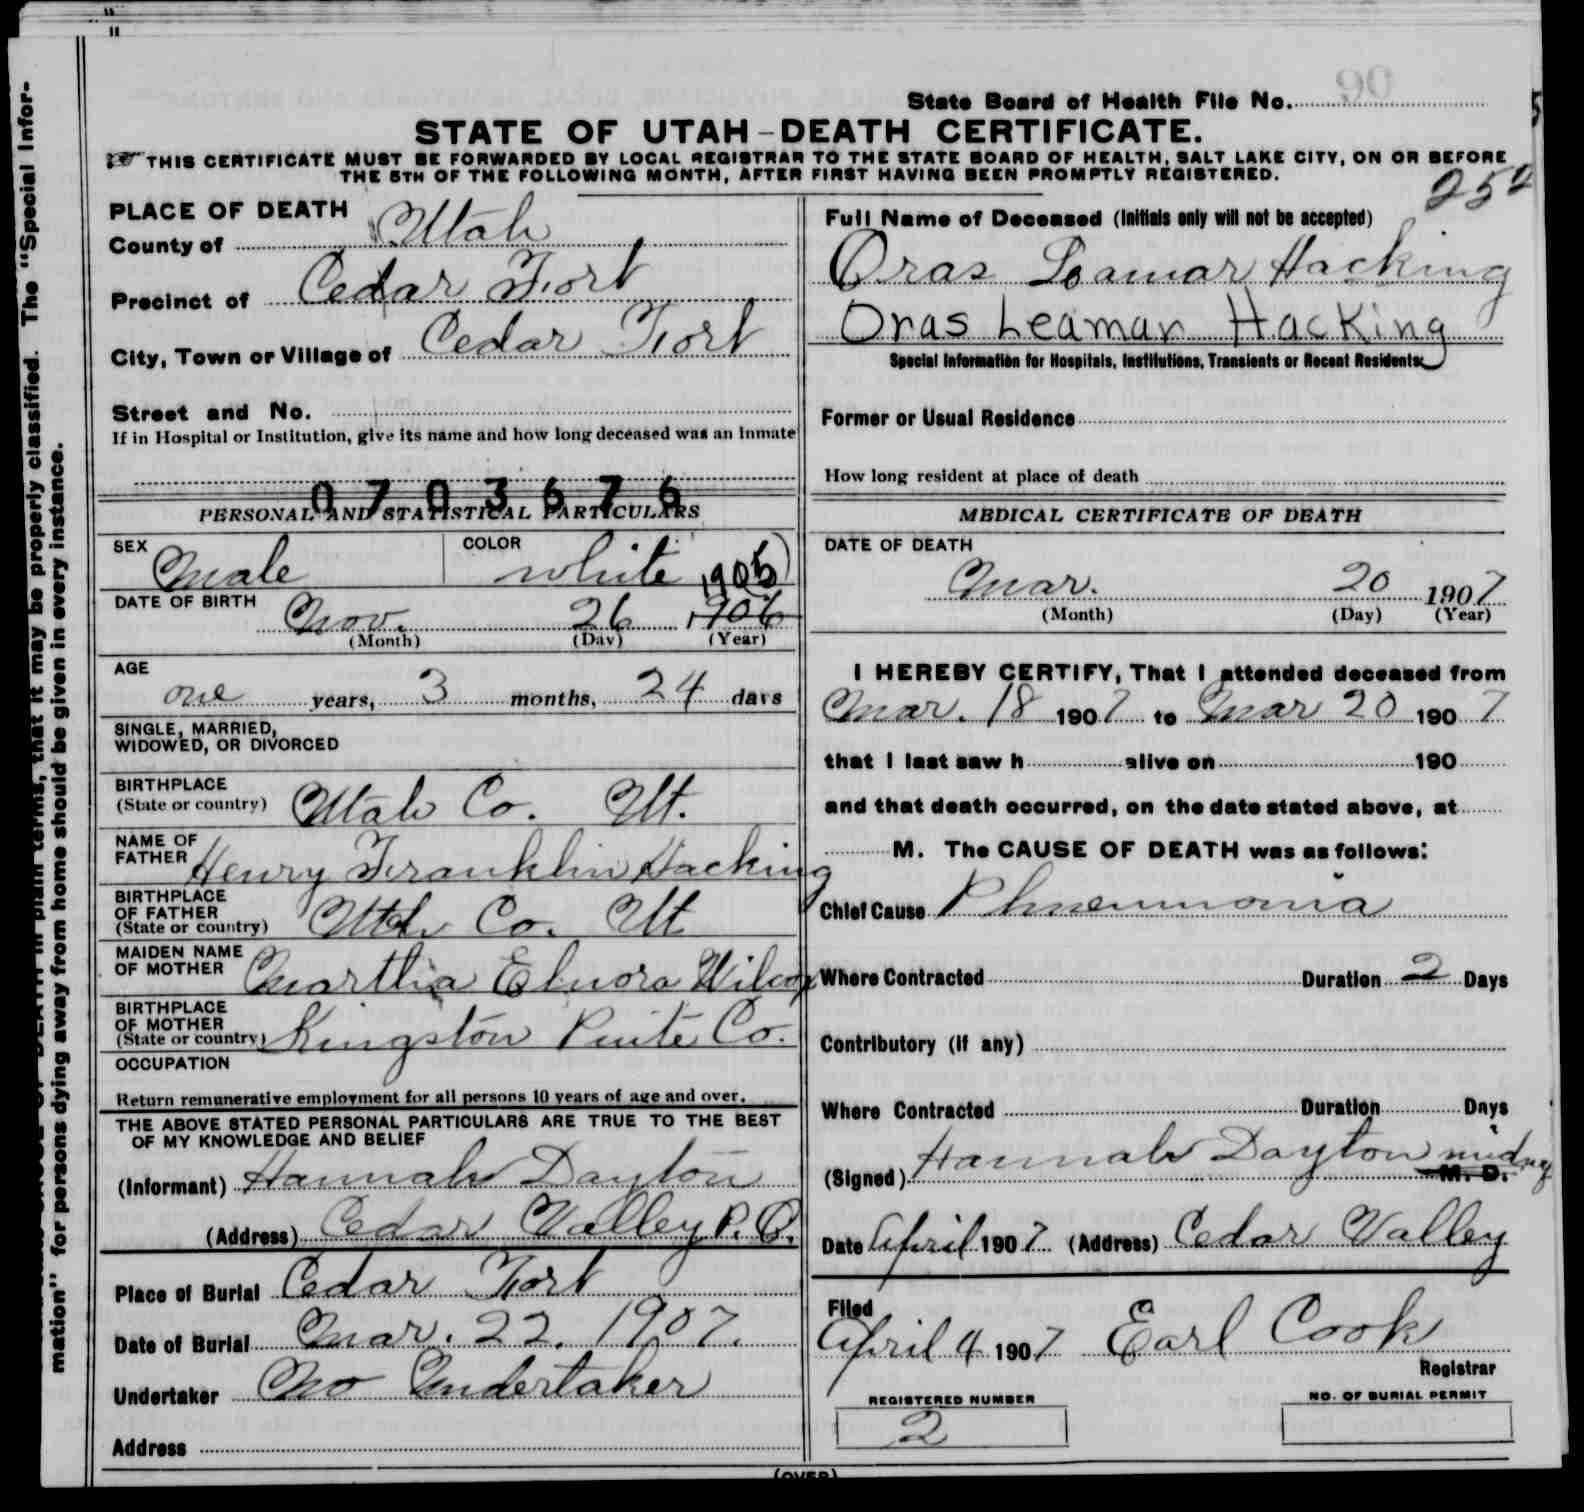 State Board of Health File No.
90
STATE OF UTAH-DEATH CERTIFICATE.
THIS CERTIFICATE MUST BE FORWARDED BY LOCAL REGISTRAR TO THE STATE BOARD OF HEALTH, SALT LAKE CITY, ON OR BEFORE
THE 5TH OF THE FOLLOWING MONTH, AFTER FIRST HAVING BEEN PROMPTLY REGISTERED.
mation" for persons dying away from home should be given in every instance.
in plain terms, that it may be properly classified. The "Special Infor-
PLACE OF DEATH
County of Utah
Precinct of Cedar Fort
City, Town or Village of Cedar Fort
Street and No.
If in Hospital or Institution, give its name and how long deceased was an Inmate
0703676
PERSONAL AND STATISTICAL PARTICULARS
SEX Male COLOR white
1905
DATE OF BIRTH Nov. 26 1906
(Month) (Day) (Year)
AGE
one years, 3 months, 24 days
SINGLE, MARRIED,
WIDOWED, OR DIVORCED
BIRTHPLACE
(State or country) Utah Co. Ut.
NAME OF
FATHER Henry Franklin Hacking
BIRTHPLACE
OF FATHER
(State or country) Utah Co. Ut
MAIDEN NAME
OF MOTHER Martha Elnora Wilcox
BIRTHPLACE
OF MOTHER
(State or country) Kingston Piute Co.
OCCUPATION
Return remunerative employment for all persons 10 years of age and over.
THE ABOVE STATED PERSONAL PARTICULARS ARE TRUE TO THE BEST
OF MY KNOWLEDGE AND BELIEF
(Informant) Hannah Dayton
(Address) Cedar Valley P. O.
Place of Burial Cedar Fort
Date of Burial Mar. 22. 1907.
Undertaker No Undertaker
Address
252
Full Name of Deceased (Initials only will not be accepted)
Oras Leamar Hacking
Oras Leamar Hacking
Special Information for Hospitals, Institutions, Transients or Recent Residents
Former or Usual Residence
How long resident at place of death
MEDICAL CERTIFICATE OF DEATH
DATE OF DEATH
Mar. 20 1907
(Month) (Day) (Year)
I HEREBY CERTIFY, That I attended deceased from
Mar. 18 1907 to Mar 20 1907
that I last saw h alive on 190
and that death occurred, on the date stated above, at
M. The CAUSE OF DEATH was as follows:
Chief Cause Phneumonia
Where Contracted Duration 2 Days
Contributory (if any)
Where Contracted Duration Days
(Signed) Hannah Dayton midwf
M. D.
Date April 1907 (Address) Cedar Valley
Filed
April 4 1907 Earl Cook
Registrar
REGISTERED NUMBER NO. OF BURIAL PERMIT
2
(OVER)